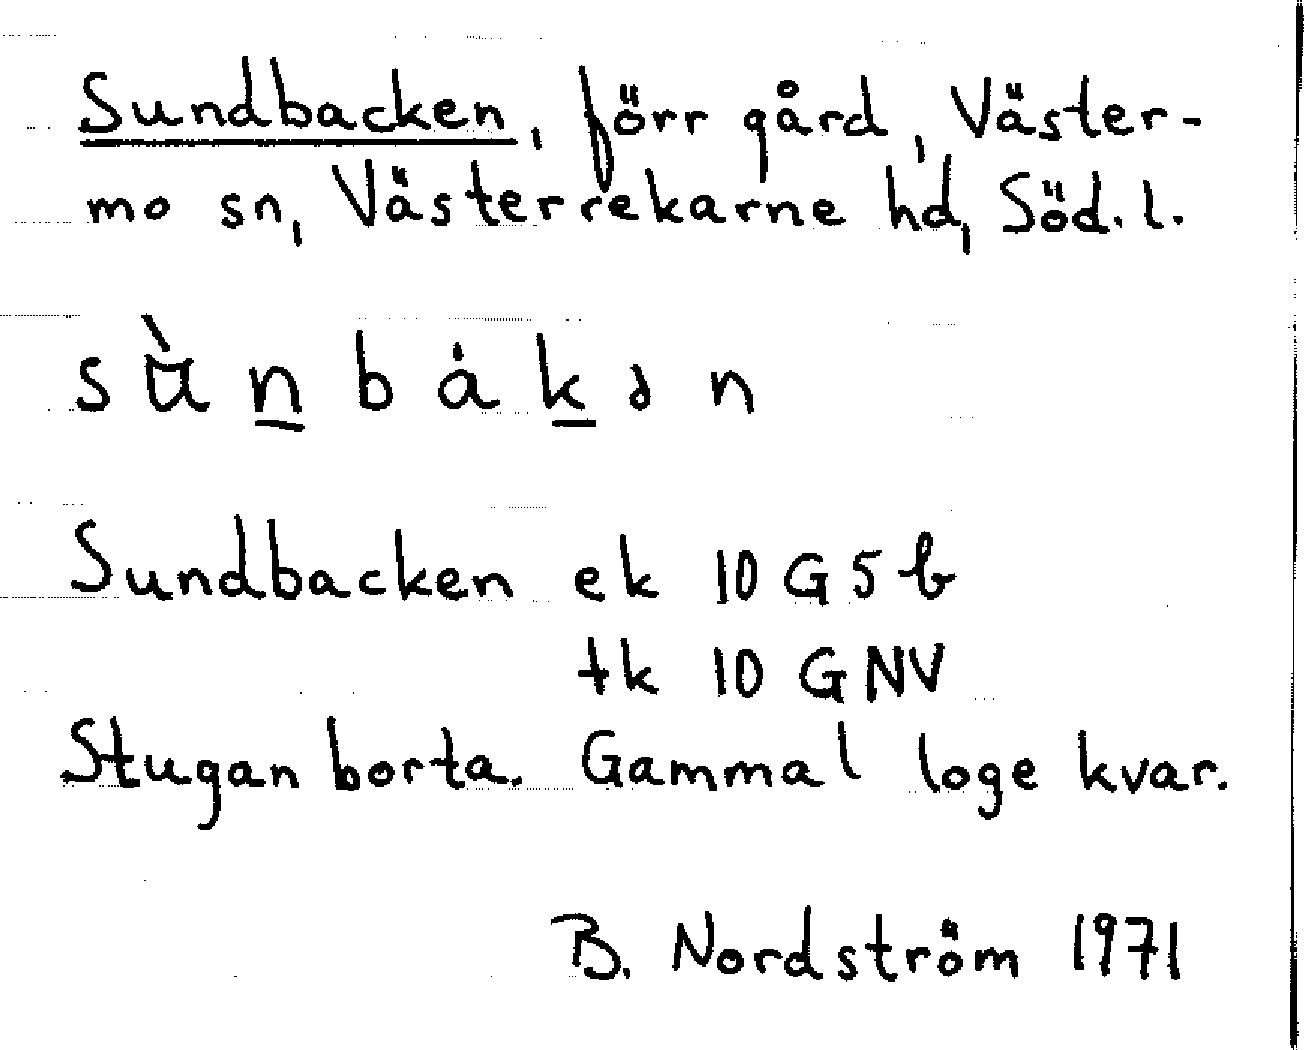 Sundbacken, förr gård, Väster-
mo sn, Västerrekarne hd, Söd. l.
sùn̲bȧk̲ən
Sundbacken ek 10 G 5 b
tk 10 G NV
Stugan borta. Gammal loge kvar.
B. Nordström 1971